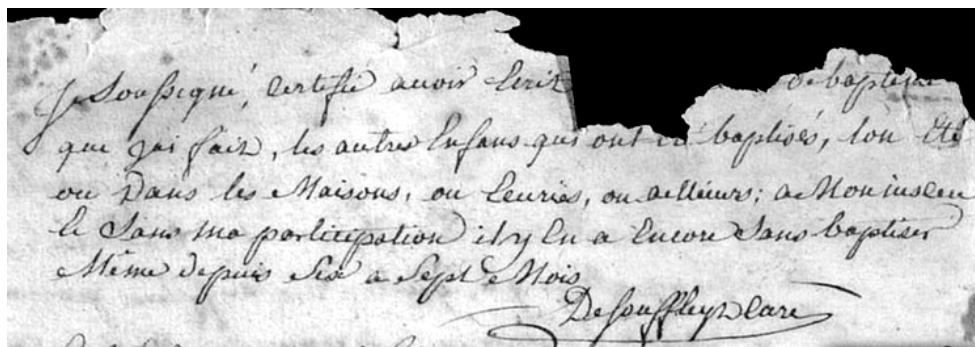 je Soussigné, certifie avoir Ecrit de baptême
que jai fait, les autres Enfans qui ont été baptisés, lon Eté
ou Dans les Maisons, ou Ecuries, ou ailleurs; a Mon insceu
Et Sans ma participation il y En a Encore Sans baptiser
Même depuis Six a Sept Mois
Desouffleyx Curé